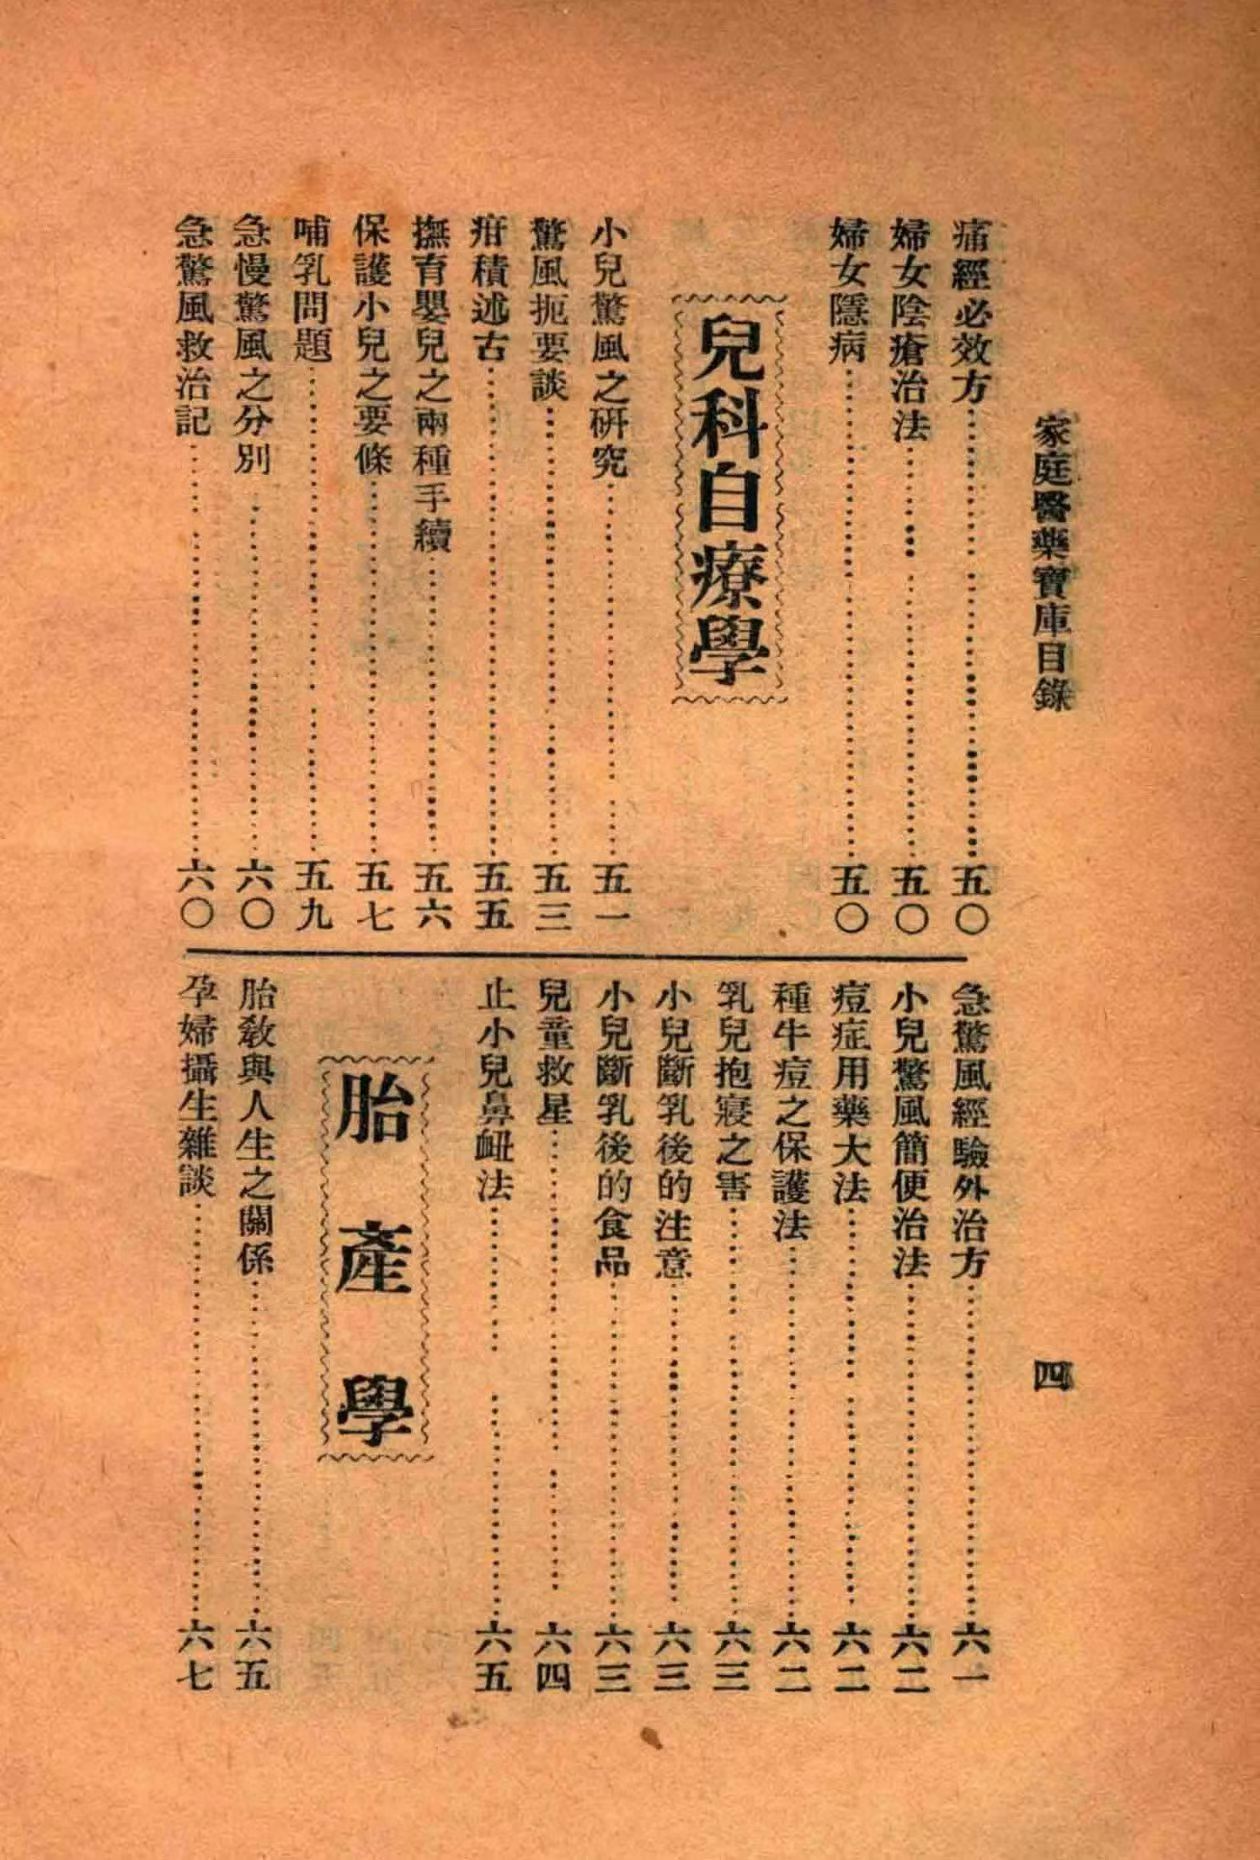 家庭醫藥寶庫目錄
四
痛經必效方……五〇
婦女陰瘡治法……五〇
婦女隱病……五〇
兒科自療學
小兒驚風之研究……五一
驚風扼要談……五三
疳積述古……五五
撫育嬰兒之兩種手續……五六
保護小兒之要條……五七
哺乳問題……五九
急慢驚風之分別……六〇
急驚風救治記……六〇
急驚風經驗外治方……六一
小兒驚風簡便治法……六二
痘症用藥大法……六二
種牛痘之保護法……六二
乳兒抱寢之害……六三
小兒斷乳後的注意……六三
小兒斷乳後的食品……六三
兒童救星……六四
止小兒鼻衄法……六五
胎產學
胎教與人生之關係……六五
孕婦攝生雜談……六七